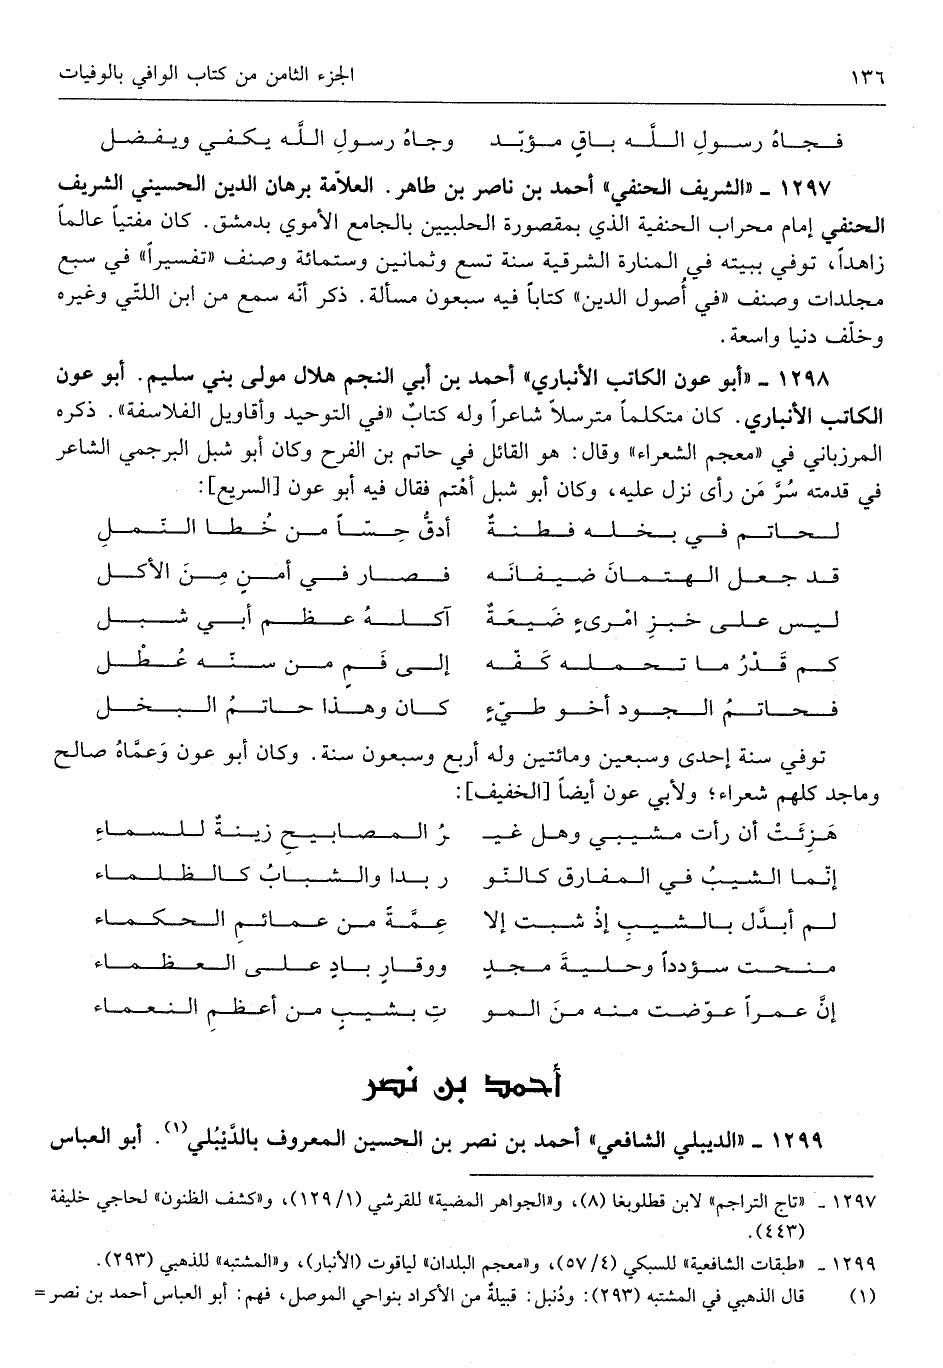 ١٣٦ الجزء الثامن من كتاب الوافي بالوفيات
فـجـاهُ رسـولِ الـلَّـه بـاقٍ مـؤبّـد وجـاهُ رسـولِ اللَّـه يـكـفـي ويـفـضـل
١٢٩٧ ـ «الشريف الحنفي» أحمد بن ناصر بن طاهر. العلاّمة برهان الدين الحسيني الشريف
الحنفي إمام محراب الحنفية الذي بمقصورة الحلبيين بالجامع الأموي بدمشق. كان مفتياً عالماً
زاهداً، توفي ببيته في المنارة الشرقية سنة تسع وثمانين وستمائة وصنف «تفسيراً» في سبع
مجلدات وصنف «في أصول الدين» كتاباً فيه سبعون مسألة. ذكر أنّه سمع من ابن اللتّي وغيره
وخلّف دنيا واسعة.
١٢٩٨ ـ «أبو عون الكاتب الأنباري» أحمد بن أبي النجم هلال مولى بني سليم. أبو عون
الكاتب الأنباري. كان متكلماً مترسلاً شاعراً وله كتابٌ «في التوحيد وأقاويل الفلاسفة». ذكره
المرزباني في «معجم الشعراء» وقال: هو القائل في حاتم بن الفرح وكان أبو شبل البرجمي الشاعر
في قدمته سُرَّ مَن رأى نزل عليه، وكان أبو شبل أهْتم فقال فيه أبو عون [السريع]:
لـحـاتـم فـي بـخـلـه فـطـنـةٌ أدقُّ حِـسّـاً مـن خُـطـا الـنَّـمـلِ
قـد جـعـل الـهـتـمـانَ ضـيـفـانَـه فـصـار فـي أمـنٍ مِـنَ الأكـلِ
لـيـس عـلـى خـبـزِ امْـرىءٍ ضَـيـعَـةٌ آكـلـهُ عـظـم أبـي شـبـلِ
كـم قَـدْرُ مـا تـحـمـلـه كَـفّـه إلـى فَـمٍ مـن سـنّـه عُـطْـلِ
فـحـاتـمُ الـجـود أخـو طـيّءٍ كـان وهـذا حـاتـمُ الـبـخـلِ
توفي سنة إحدى وسبعين ومائتين وله أربع وسبعون سنة. وكان أبو عون وَعمَّاهُ صالح
وماجد كلهم شعراء؛ ولأبي عون أيضاً [الخفيف]:
هَـزِئَـتْ أن رأت مـشـيـبـي وهـل غـيـ ـرُ الـمـصـابـيـح زيـنـةٌ لـلـسـمـاءِ
إنّـمـا الـشـيـبُ فـي الـمـفـارق كـالـنّـو ر بـدا والـشـبـابُ كـالـظـلـمـاء
لـم أبـدَّل بـالـشـيـبِ إذْ شـبـت إلا عِـمَّـةً مـن عـمـائـمِ الـحـكـمـاء
مـنـحـت سـؤدداً وحـلـيـةَ مـجـدٍ ووقـارٍ بـادٍ عـلـى الـعـظـمـاء
إنَّ عـمـراً عـوّضـت مـنـه مـنَ الـمـو تِ بـشـيـبٍ مـن أعـظـمِ الـنـعـمـاء
أحمد بن نصر
١٢٩٩ ـ «الديبلي الشافعي» أحمد بن نصر بن الحسين المعروف بالدَّيْبُلي(١). أبو العباس
١٢٩٧ ـ «تاج التراجم» لابن قطلوبغا (٨)، و«الجواهر المضية» للقرشي (١/ ١٢٩)، و«كشف الظنون» لحاجي خليفة
(٤٤٣).
١٢٩٩ ـ «طبقات الشافعية» للسبكي (٤/ ٥٧)، و«معجم البلدان» لياقوت (الأنبار)، و«المشتبه» للذهبي (٢٩٣).
(١) قال الذهبي في المشتبه (٢٩٣): ودُنبل: قبيلة من الأكراد بنواحي الموصل، فهم: أبو العباس أحمد بن نصر =